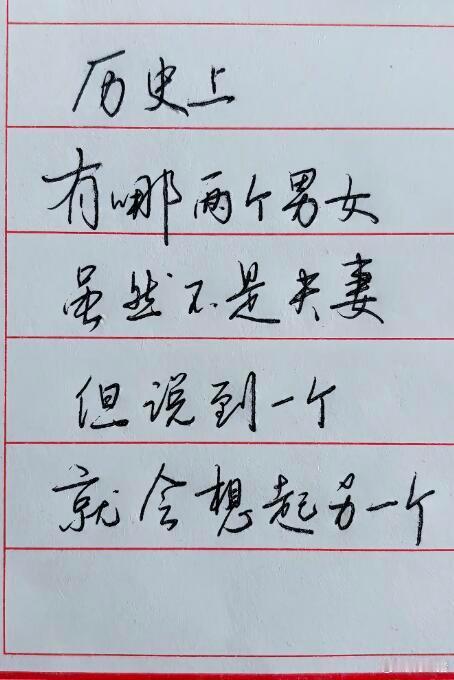 历史上
有哪两个男女
虽然不是夫妻
但说到一个
就会想起另一个